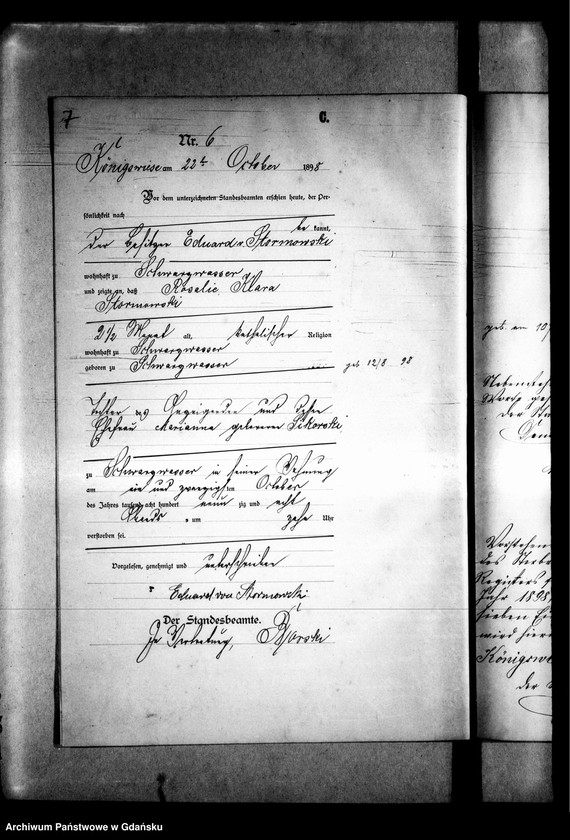 7
C.
Nr. 6
Königswiese am 22ten October 1898
Vor dem unterzeichneten Standesbeamten erschien heute, der Per-
sönlichkeit nach
be kannt,
der Besitzer Eduard v. Stormowski
wohnhaft zu Schwarzwasser
und zeigte an, daß Rosalie Klara
Stormowski
2 1/2 Monat alt, katholischer Religion
wohnhaft zu Schwarzwasser
geboren zu Schwarzwasser geb 12/8 98
Tochter des Anzeigenden und dessen
Ehefrau Marianna geborenen Sikorski
zu Schwarzwasser in seiner Wohnung
am ein und zwanzigsten October
des Jahres tausend acht hundert neun zig und acht
Abends um zehn Uhr
verstorben sei.
Vorgelesen, genehmigt und unterschrieben
Eduard von Stormowski
Der Standesbeamte.
In Vertretung,
geb. am 10/
Vorstehen
des Sterbe
Registers
Jahr 1898
wird hier
Königswi
der
Archiwum Państwowe w Gdańsku